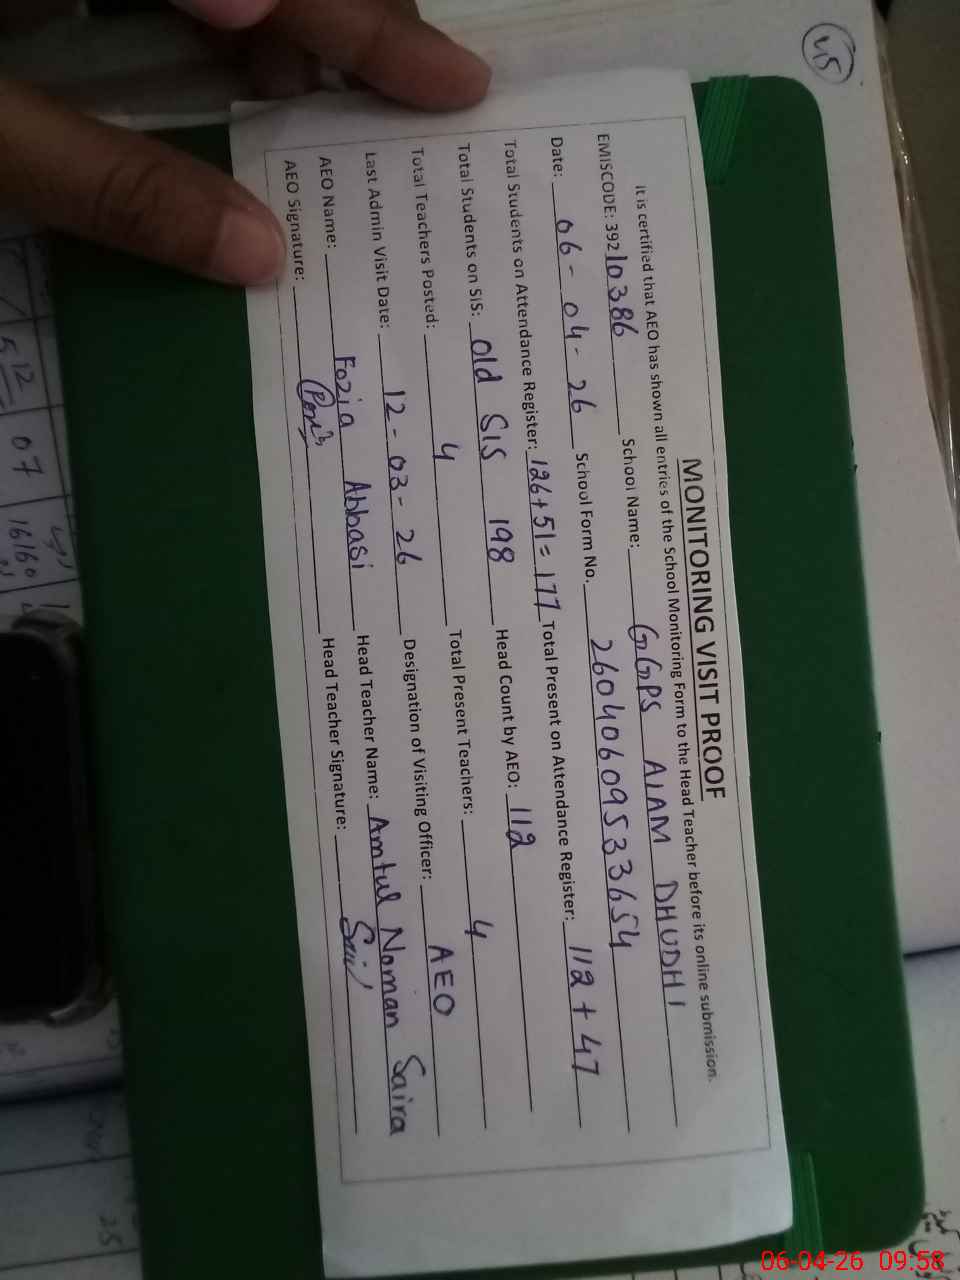 MONITORING VISIT PROOF
It is certified that AEO has shown all entries of the School Monitoring Form to the Head Teacher before its online submission.
EMISCODE: 39210386 School Name: GGPS AIAM DHUDHI
Date: 06-04-26 School Form No. 26040609533654
Total Students on Attendance Register: 126+51=177 Total Present on Attendance Register: 112+47
Total Students on SIS: Old SIS 198 Head Count by AEO: 112
Total Teachers Posted: 4 Total Present Teachers: 4
Last Admin Visit Date: 12-03-26 Designation of Visiting Officer: AEO
AEO Name: Fozia Abbasi Head Teacher Name: Amtul Noman Saira
AEO Signature: Head Teacher Signature:
12
07
16160
25
06-04-26 09:58